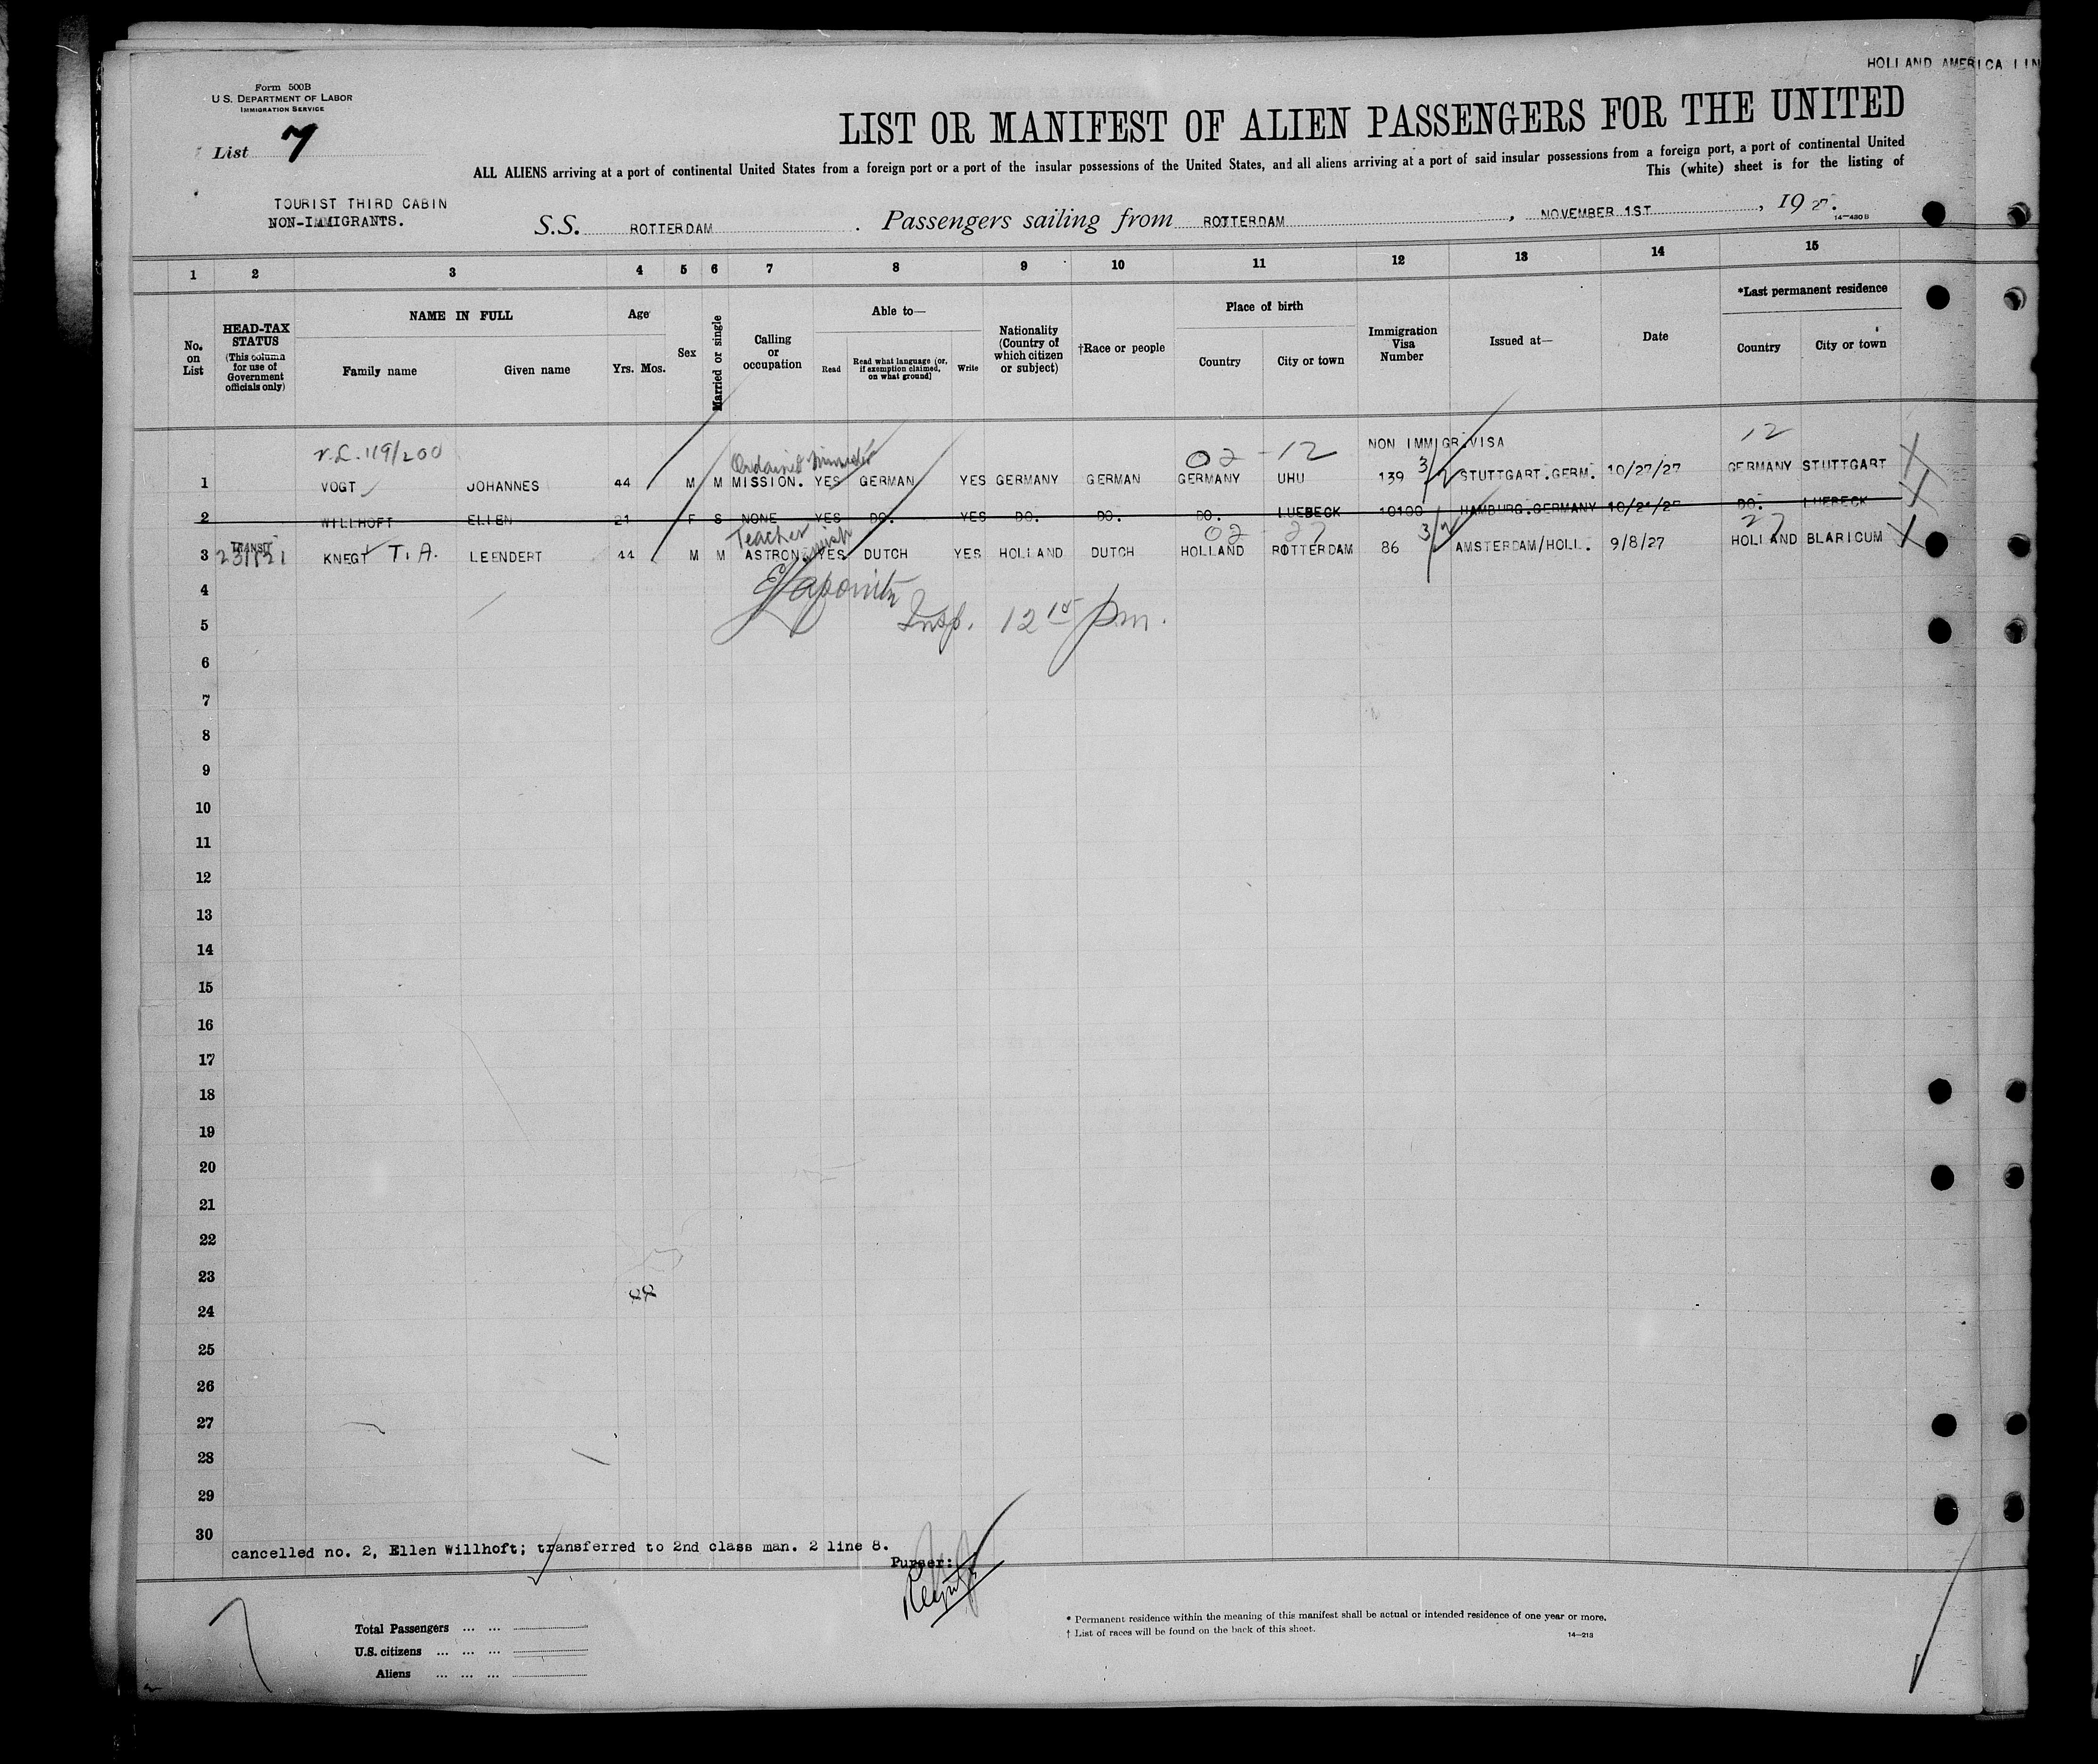 HOLLAND AMERICA LIN
Form 500B
U.S. DEPARTMENT OF LABOR
IMMIGRATION SERVICE
List 7
LIST OR MANIFEST OF ALIEN PASSENGERS FOR THE UNITED
ALL ALIENS arriving at a port of continental United States from a foreign port or a port of the insular possessions of the United States, and all aliens arriving at a port of said insular possessions from a foreign port, a port of continental United
This (white) sheet is for the listing of
TOURIST THIRD CABIN
NON-IMMIGRANTS.
S.S. ROTTERDAM. Passengers sailing from ROTTERDAM, NOVEMBER 1ST, 1927.
14-430 B
1 2 3 4 5 6 7 8 9 10 11 12 13 14 15
No. on List
HEAD-TAX STATUS
(This column for use of Government officials only)
NAME IN FULL
Family name Given name
Age
Yrs. Mos.
Sex
Married or single
Calling or occupation
Able to—
Read
Read what language (or, if exemption claimed, on what ground)
Write
Nationality (Country of which citizen or subject)
†Race or people
Place of birth
Country City or town
Immigration Visa Number
Issued at—
Date
*Last permanent residence
Country City or town
V.L. 119/200 Ordained Minister 02 - 12 NON IMMIGR.VISA 12
1 VOGT JOHANNES 44 M M MISSION. YES GERMAN YES GERMANY GERMAN GERMANY UHU 139 3/2 STUTTGART.GERM. 10/27/27 GERMANY STUTTGART X
2 WILLHOFT ELLEN 21 F S NONE YES DO. YES DO. DO. DO. LUEBECK 10100 HAMBURG.GERMANY 10/21/2 DO. LUEBECK X
TRANSIT Teacher 02 - 27 3/2 27
3 KNEGT T. A. LEENDERT 44 M M ASTRON. YES DUTCH YES HOLLAND DUTCH HOLLAND ROTTERDAM 86 AMSTERDAM/HOLL. 9/8/27 HOLLAND BLARICUM X
4
5 Insp. 12 15 pm.
6
7
8
9
10
11
12
13
14
15
16
17
18
19
20
21
22
23
24
25
26
27
28
29
30
cancelled no. 2, Ellen Willhoft; transferred to 2nd class man. 2 line 8.
Purser:
Total Passengers ... ...
U.S. citizens ... ... ...
Aliens ... ... ...
* Permanent residence within the meaning of this manifest shall be actual or intended residence of one year or more.
† List of races will be found on the back of this sheet.
14-213